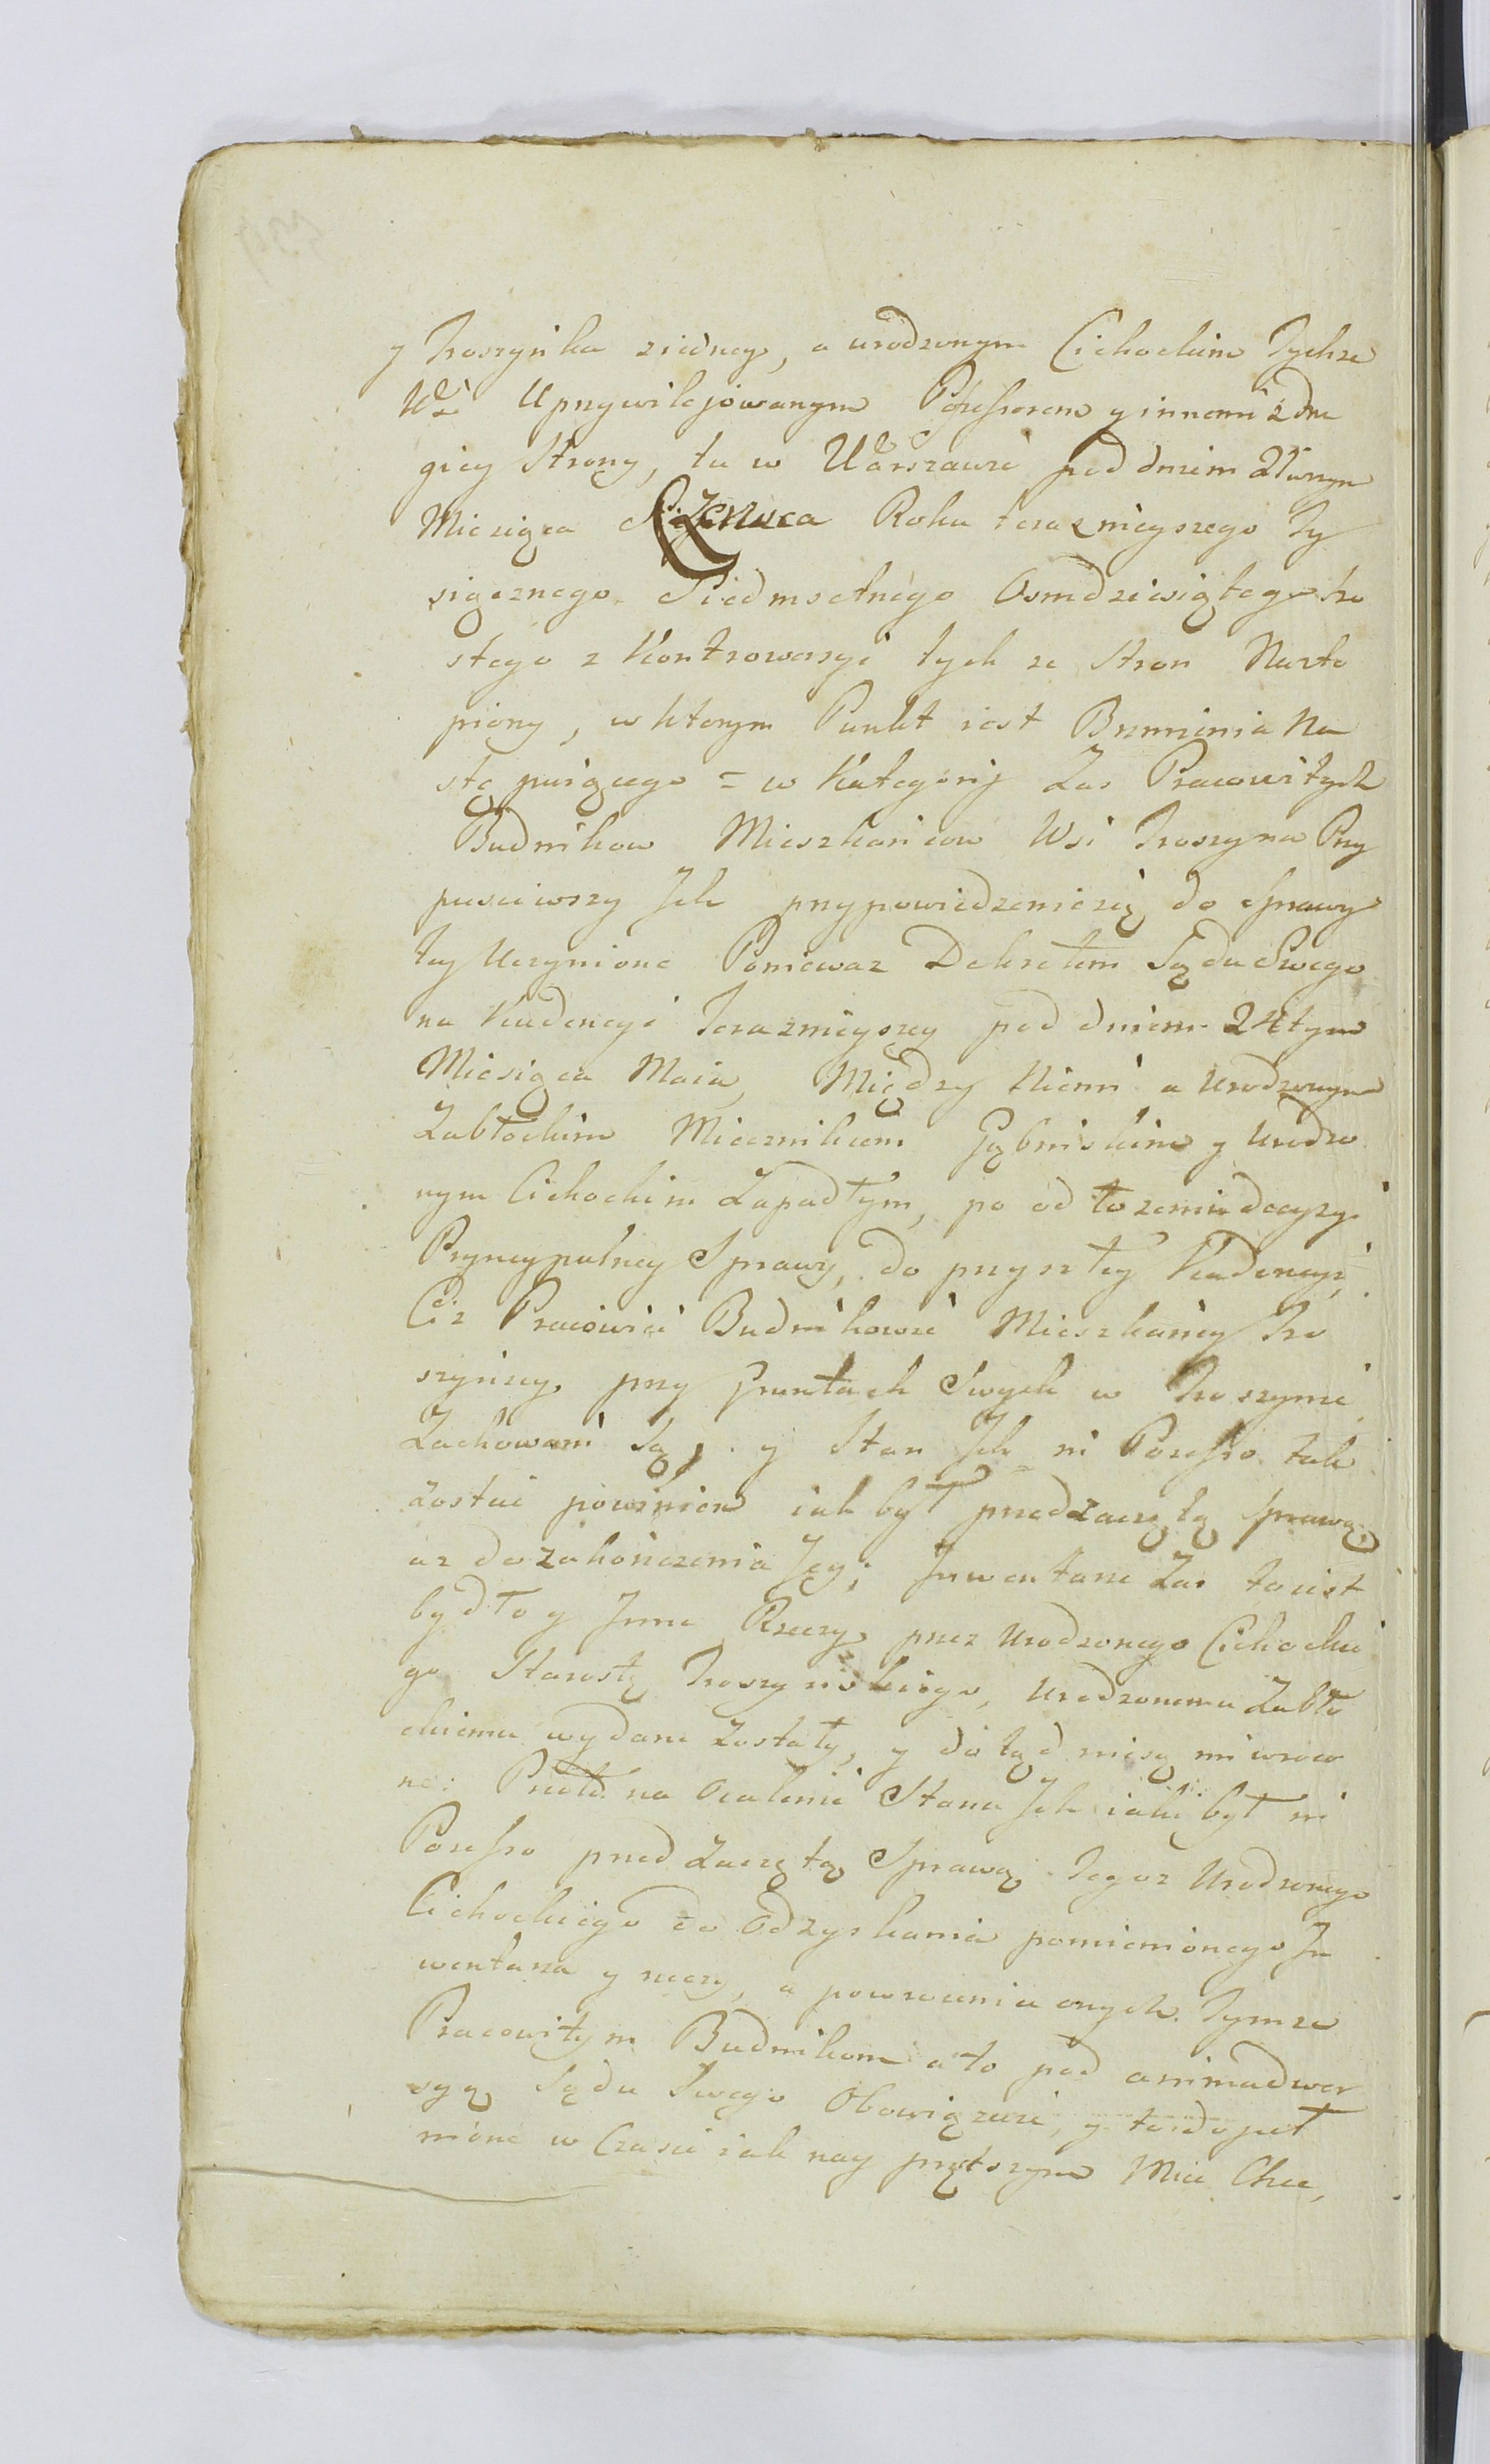 y Troszynka ziedney, a urodzonym Cichockim Tychże
Wsi Uprzywilejowanym Possessorem y innemi z dru
giey Strony, tu w Warszawie pod dniem 21wszym
Miesiąca Czerwca Roku terazmieyszego Ty
siącznego Siedmsetnego Osmdziesiątego Szo
stego z Kontrowersyi tych ze Stron Nastą
piony, w ktorym Punkt iest Brzmienia Na
stępuiącego = w Kategoryi Zas Pracowitych
Budnikow Mieszkańcow Wsi Troszyna Przy
pusciwszy Ich przypowiedzenie się do Sprawy
tey Uczynione Poniewaz Dekretem Sądu Swego
na Kadencyi Terazmieyszey pod dniem 24tym
Miesiąca Maia, Między Niemi a Urodzonym
Zabłockim Miecznikiem Gąbinskim y Urodzo
nym Cichockim Zapadłym, po odłozeniu decyzyi
Pryncypalney Sprawy, do przyszłey Kadencyi,
Ciz Pracowici Budnikowie Mieszkańcy Tro
szyńscy, przy Gruntach Swych w Troszynie
Zachowani Są, y Stan Ich in Possesso tak
zostać powinien iak był przed zaczętą Sprawą,
az do zakończenia Jey; Inwentarze Zas to iest
bydło y Inne Rzeczy przez Urodzonego Cichockie
go Starostę Troszynskiego, Urodzonemu Zabło
ckiemu wydane Zostały, y dotąd nie są im wroco
ne: Przeto na Ocalenie Stanu Ich iaki był in
Possesso przed Zaczętą Sprawą Tegoz Urodzonego
Cichockiego do Odzyskania pomienionego In
wentarza y rzeczy, a powrocenia onych Tymze
Pracowitym Budnikom a to pod animadwer
syą Sądu Swego Obowiązuie, y to dopeł
nione w Czasie iak nay prętszym Miec Chce,